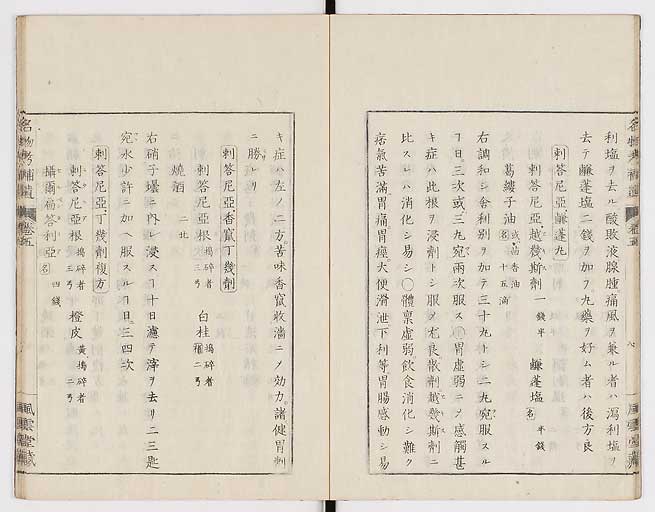 利塩ヲ去ル酸敗液腺腫痛風ヲ兼ル者ハ瀉利塩ヲ
去テ鹻蓬塩二銭ヲ加フ丸藥ヲ好ム者ハ後方良
刺答尼亞鹻蓬丸
刺答尼亞越幾斯劑 一銭半 鹻蓬塩 名 半銭
葛縷子油 名 或ハ茴香油 十五滴
右調和シ舎利別ヲ加テ三十丸トシ二丸宛服スル
ヿ日三次或三丸宛兩次服ス○胃虚弱ニメ感觸甚
キ症ハ此根ヲ浸劑トシ服メ尤良散劑越幾斯劑ニ
比スレハ消化シ易シ○體禀虚弱飲食消化シ難ク
痞氣苦滿胃痛胃痙大便滑泄下利等胃腸感動シ易
キ症ハ左ノ二方苦味香竄收濇ニメ効力諸健胃劑
ニ勝レリ
刺答尼亞香竄丁幾劑
刺答尼亞根 搗碎者 三ヲ 白桂 搗碎者 二ヲ
燒酒 二
右硝子壜ニ内レ浸スヿ十日濾テ滓ヲ去リ二三匙
宛水少許ニ加ヘ服スルヿ日三四次
刺答尼亞丁幾劑複方
刺答尼亞根 搗碎者 三ヲ 橙皮 黄搗碎者 二ヲ
攝爾福答利亞 名 四銭
名物考補遺 卷五
風雲堂藏